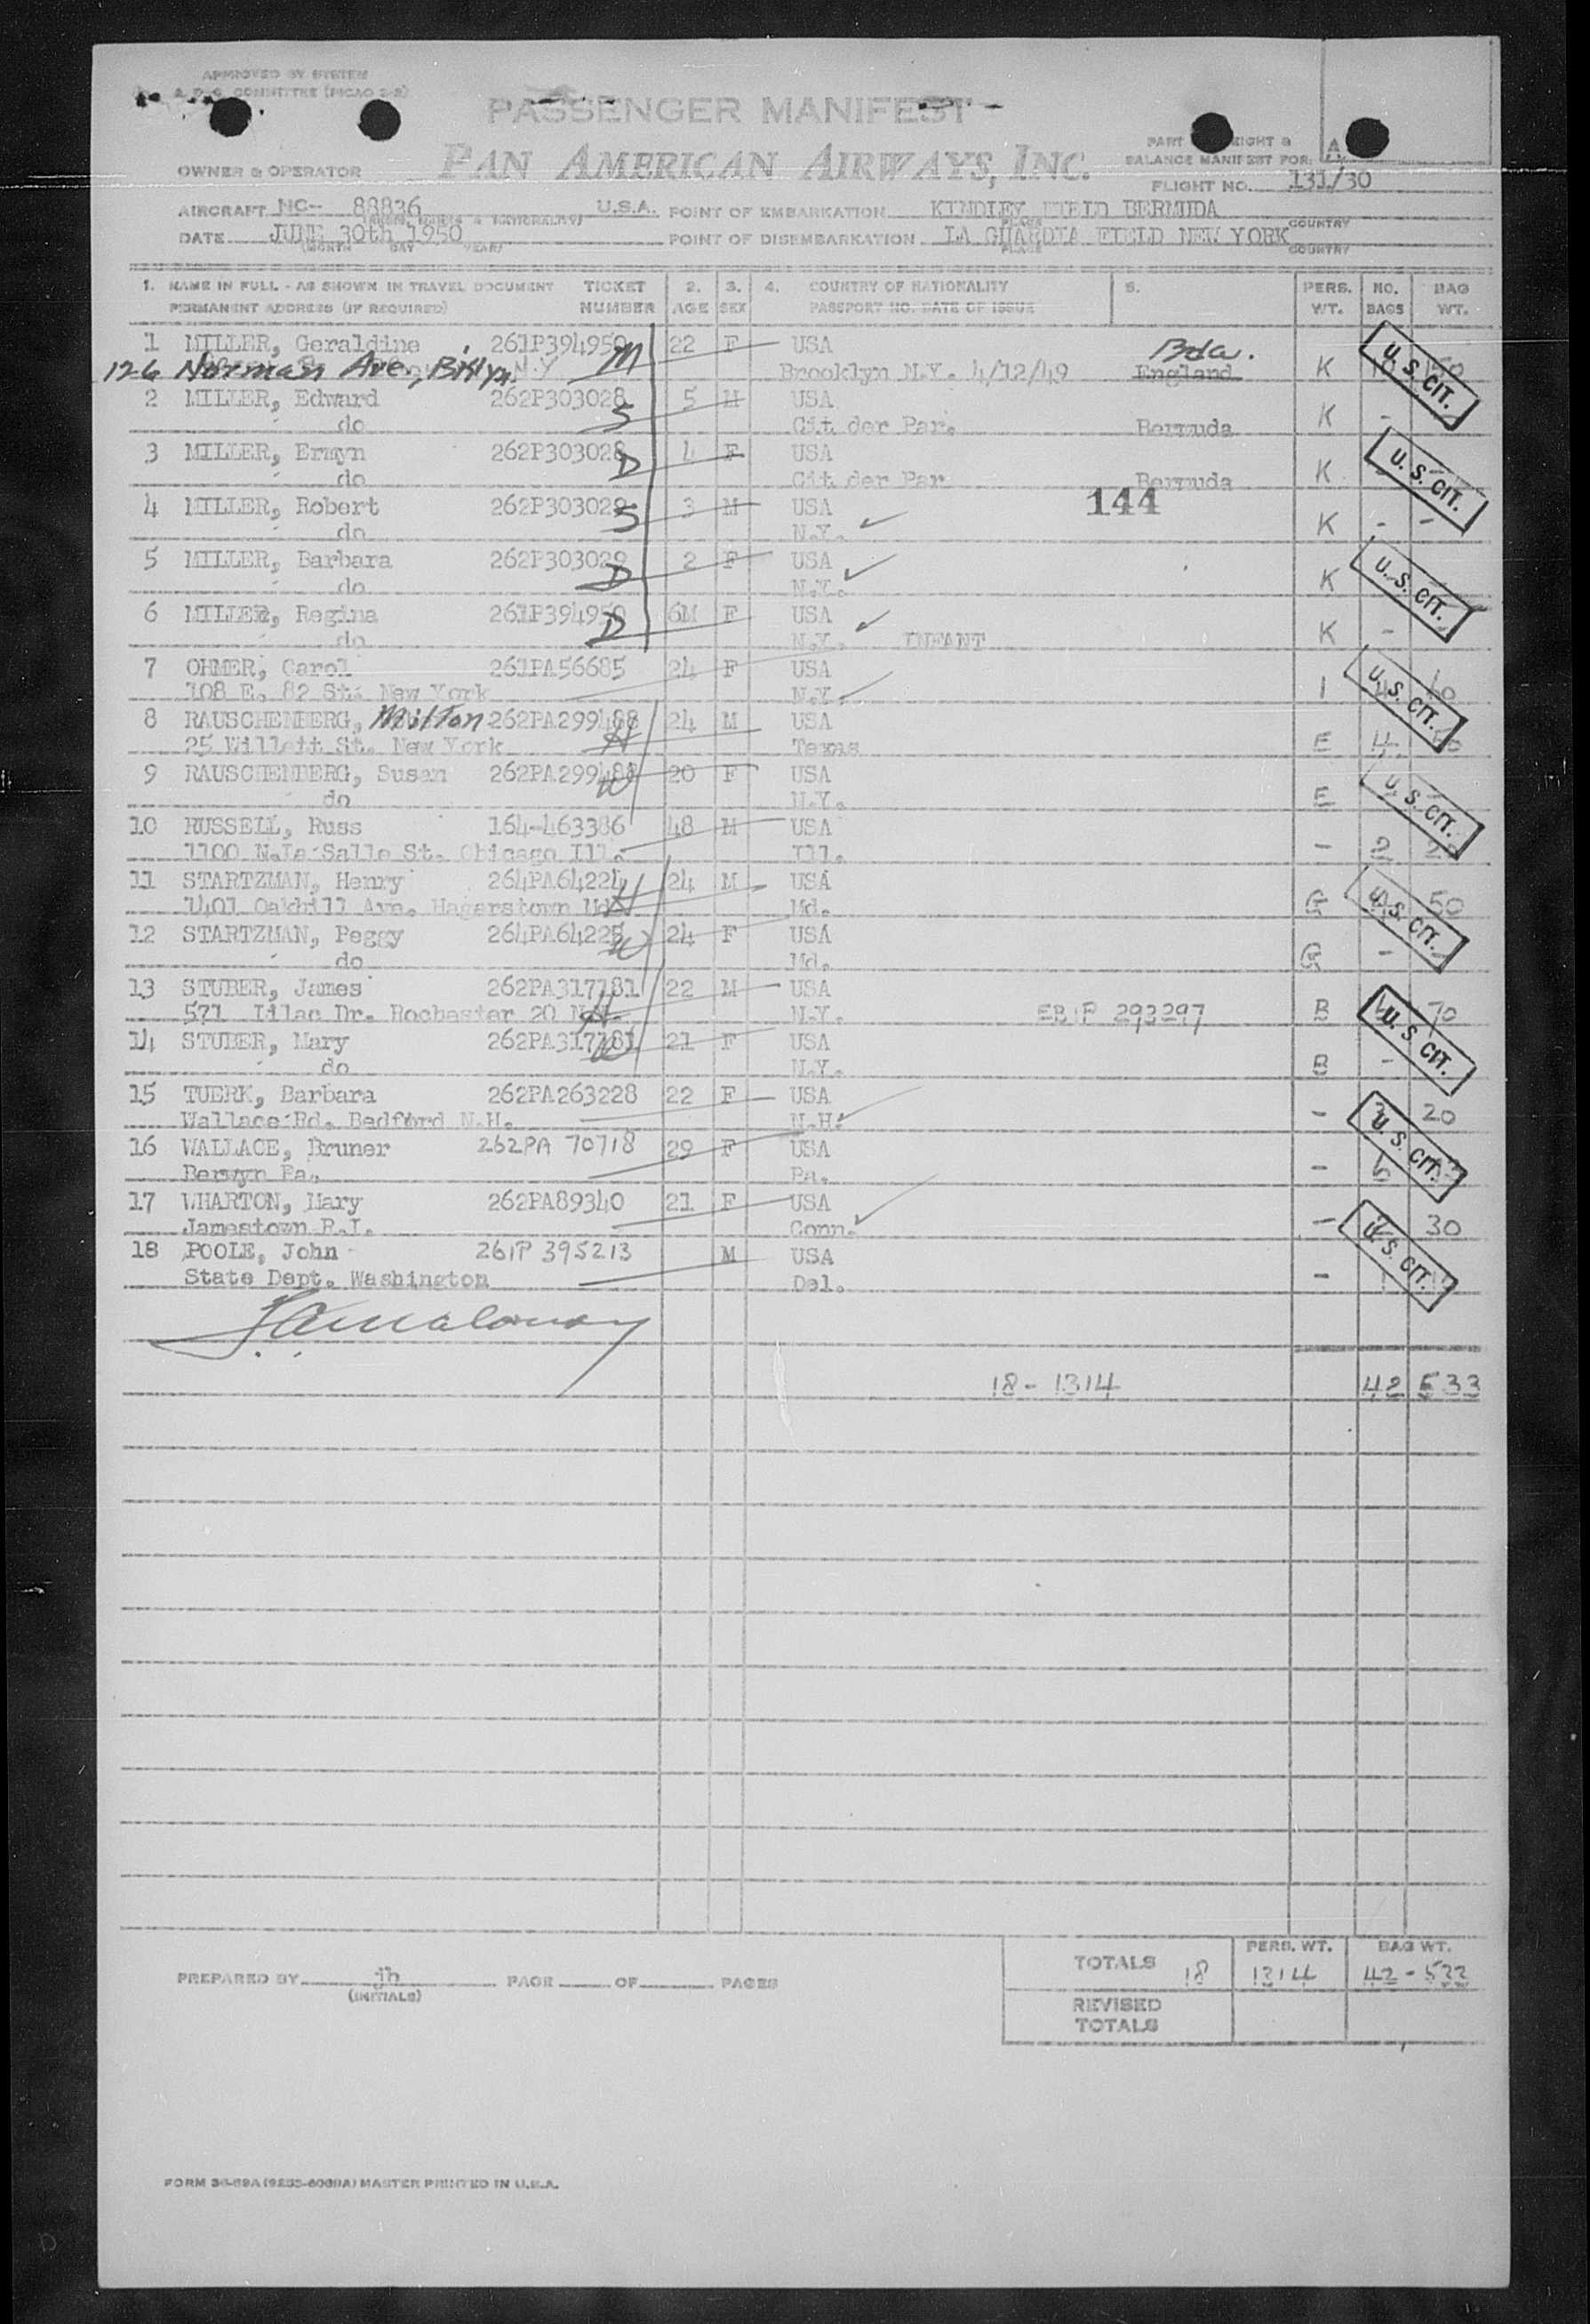 APPROVED BY SYSTEM
COMMITTEE (PICAO 2-8)
PASSENGER MANIFEST
PART WEIGHT &
BALANCE MANIFEST FOR:
OWNER & OPERATOR PAN AMERICAN AIRWAYS, INC.
FLIGHT NO. 131/30
AIRCRAFT NC-- 88836 U.S.A. POINT OF EMBARKATION KINDLEY FIELD BERMUDA
PLACE COUNTRY
DATE JUNE 30th 1950 POINT OF DISEMBARKATION LA GUARDIA FIELD NEW YORK
(MONTH DAY YEAR) PLACE COUNTRY
1. NAME IN FULL - AS SHOWN IN TRAVEL DOCUMENT TICKET 2. 3. 4. COUNTRY OF NATIONALITY 5. PERS. NO. BAG
PERMANENT ADDRESS (IF REQUIRED) NUMBER AGE SEX PASSPORT NO. DATE OF ISSUE WT. BAGS WT.
1 MILLER, Geraldine 261P394950 22 F USA Bda. U.S. CIT.
126 Norman Ave., Bklyn. N.Y. M Brooklyn N.Y. 4/12/49 England K
2 MILLER, Edward 262P303028 5 M USA
do S Cit der Par. Bermuda K -
3 MILLER, Ermyn 262P303028 4 F USA U.S. CIT.
do D Cit der Par Bermuda K
4 MILLER, Robert 262P303029 3 M USA 144
do S N.Y. K - -
5 MILLER, Barbara 262P303029 2 F USA U.S. CIT.
do D N.Y. K
6 MILLER, Regina 261P394950 6M F USA
do D N.Y. INFANT K -
7 OHMER, Carol 261PA56685 24 F USA U.S. CIT.
108 E. 82 St. New York N.Y. 1
8 RAUSCHENBERG, Milton 262PA299488 24 M USA
25 Willett St. New York H Texas E 4
9 RAUSCHENBERG, Susan 262PA299488 20 F USA U.S. CIT.
do W N.Y. E
10 RUSSELL, Russ 164-463386 48 M USA
1100 N.La Salle St. Chicago Ill. Ill. - 2
11 STARTZMAN, Henry 264PA64224 24 M USA U.S. CIT.
1401 Oakhill Ave. Hagerstown Md. H Md. G 50
12 STARTZMAN, Peggy 264PA64225 24 F USA
do W Md. G - -
13 STUBER, James 262PA317181 22 M USA U.S. CIT.
571 Lilac Dr. Rochester 20 N.Y. H N.Y. EBIP 293297 B 70
14 STUBER, Mary 262PA317181 21 F USA
do W N.Y. B -
15 TUERK, Barbara 262PA263228 22 F USA U.S. CIT.
Wallace Rd. Bedford N.H. N.H. - 20
16 WALLACE, Bruner 262PA 70718 29 F USA
Berwyn Pa. Pa. -
17 WHARTON, Mary 262PA89340 21 F USA U.S. CIT.
Jamestown R.I. Conn. - 30
18 POOLE, John 261P 395213 M USA
State Dept. Washington Del. -
18 - 1314 42 533
PERS. WT. BAG WT.
TOTALS 18 1314 42 - 533
PREPARED BY jh PAGE OF PAGES
(INITIALS)
REVISED
TOTALS
MASTER PRINTED IN U.S.A.